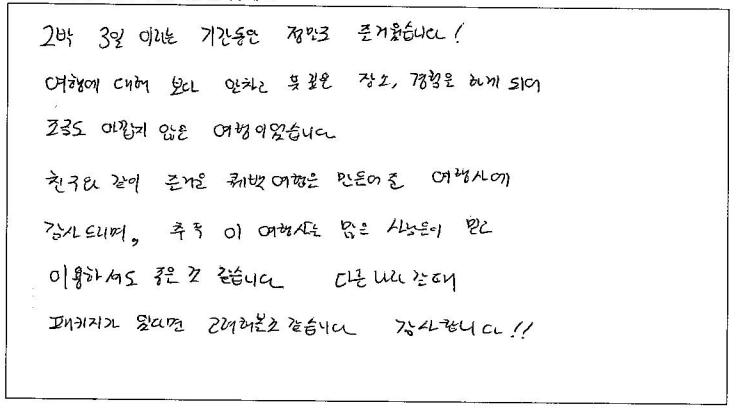 2박 3일 이라는 기간동안 정말로 즐거웠습니다!
여행에 대해 보다 알차고 뜻 깊은 장소, 경험을 하게 되어
조금도 아깝지 않은 여행이었습니다
친구와 같이 즐거운 퀘백여행은 만들어 준 여행사에
감사드리며, 추후 이 여행사는 많은 사람들이 믿고
이용하셔도 좋은 것 같습니다 다른 나라 갈 때
패키지가 있다면 고려해볼 것 같습니다 감사합니다!!